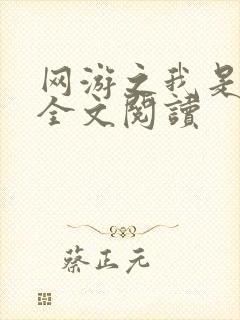 网游之我是
全文閱讀
蔡正元